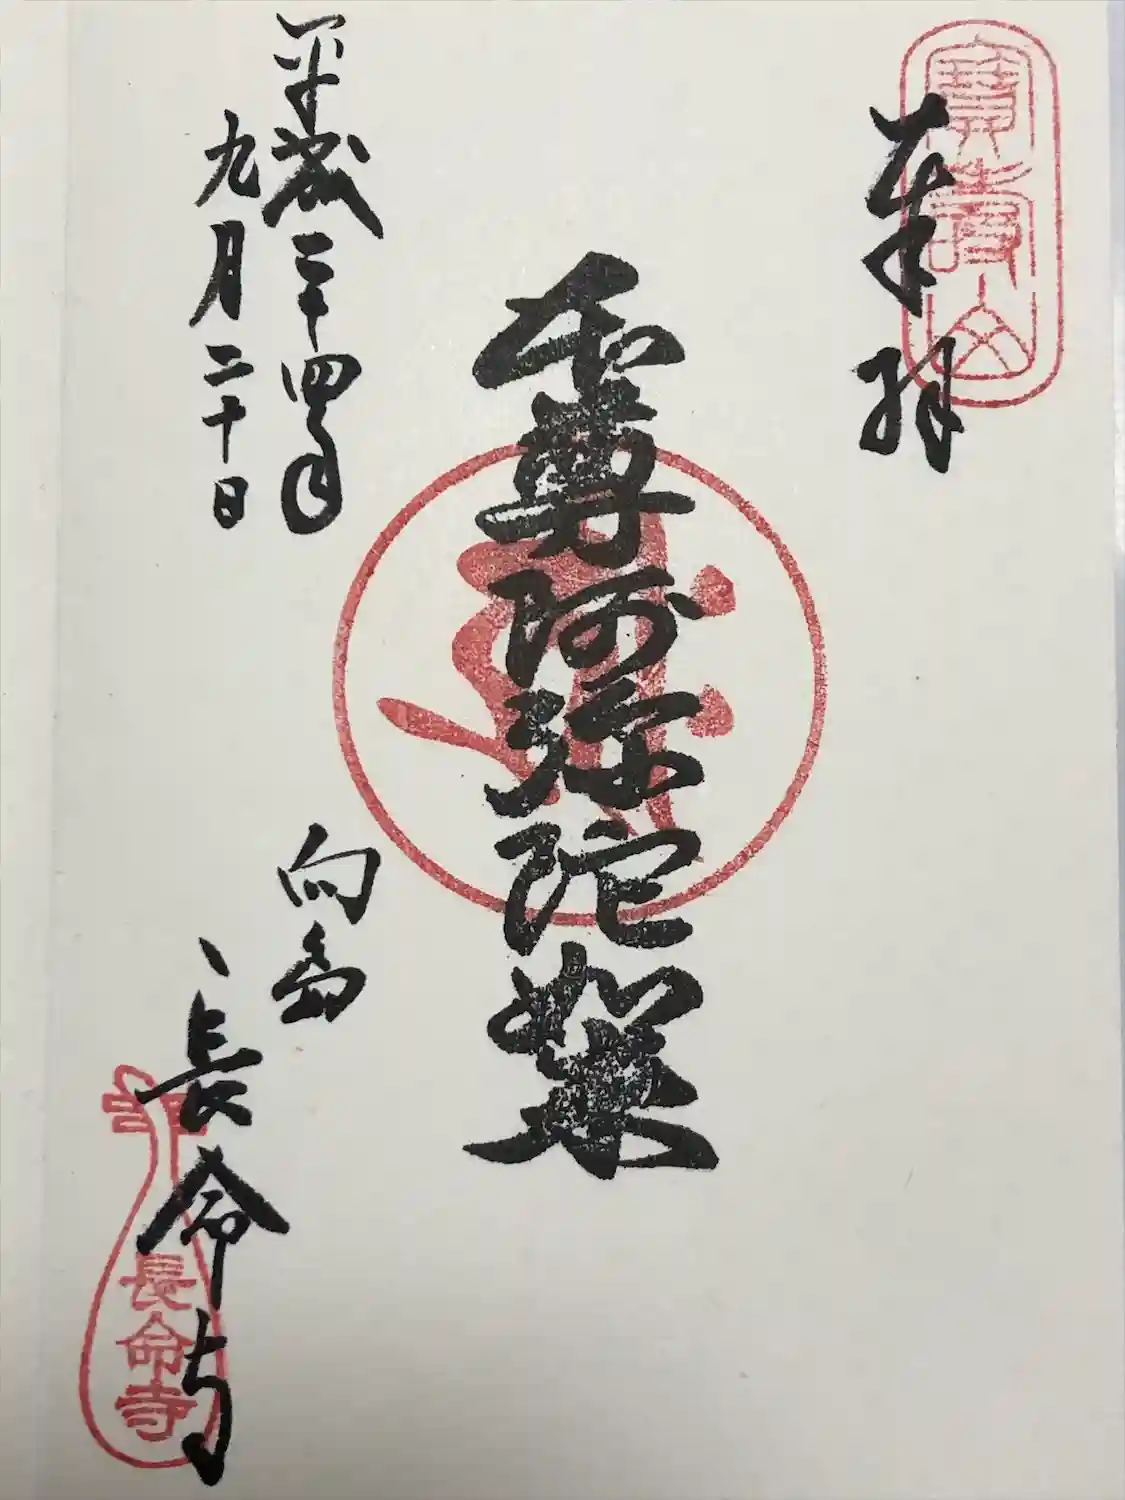 寶壽山
奉拝
本尊阿弥陀如来
平成二十四年
九月二十日
向島
長命寺
長命寺